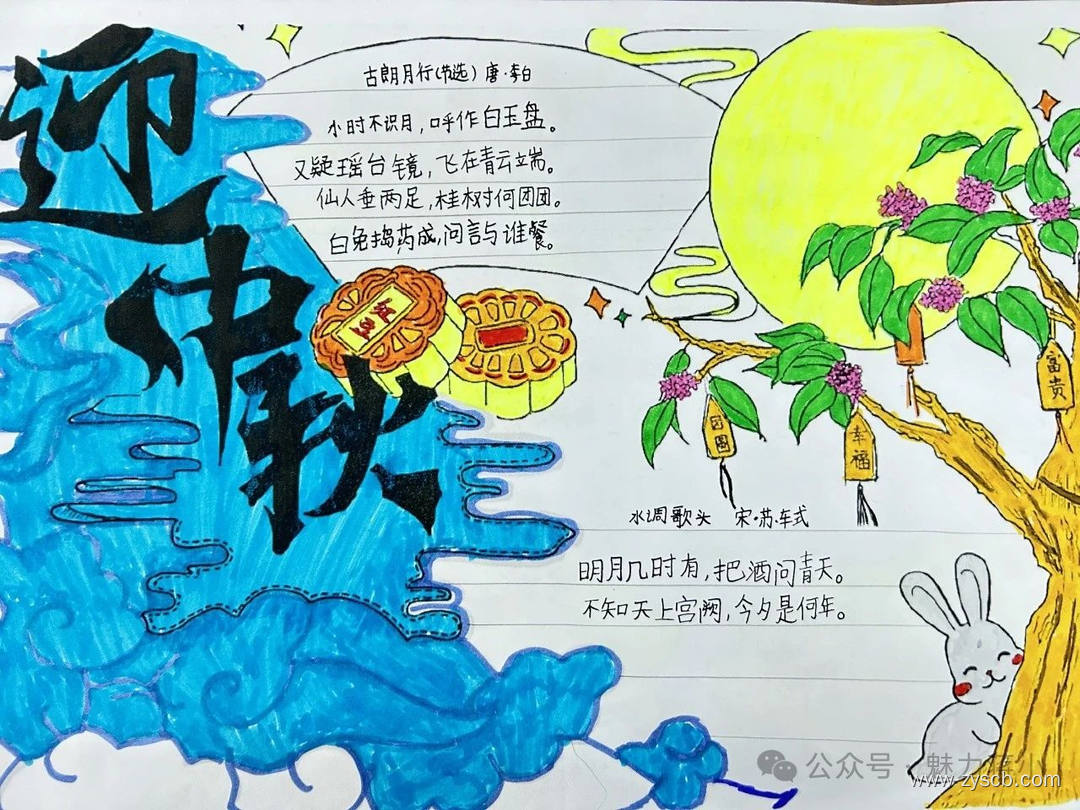 迎中秋
古朗月行(节选) 唐·李白
小时不识月,呼作白玉盘。
又疑瑶台镜,飞在青云端。
仙人垂两足,桂树何团团。
白兔捣药成,问言与谁餐。
红豆
富贵
团圆
幸福
水调歌头 宋·苏·车式
明月几时有,把酒问青天。
不知天上宫阙,今夕是何年。
公众号·魅力 小
www.zyscb.com